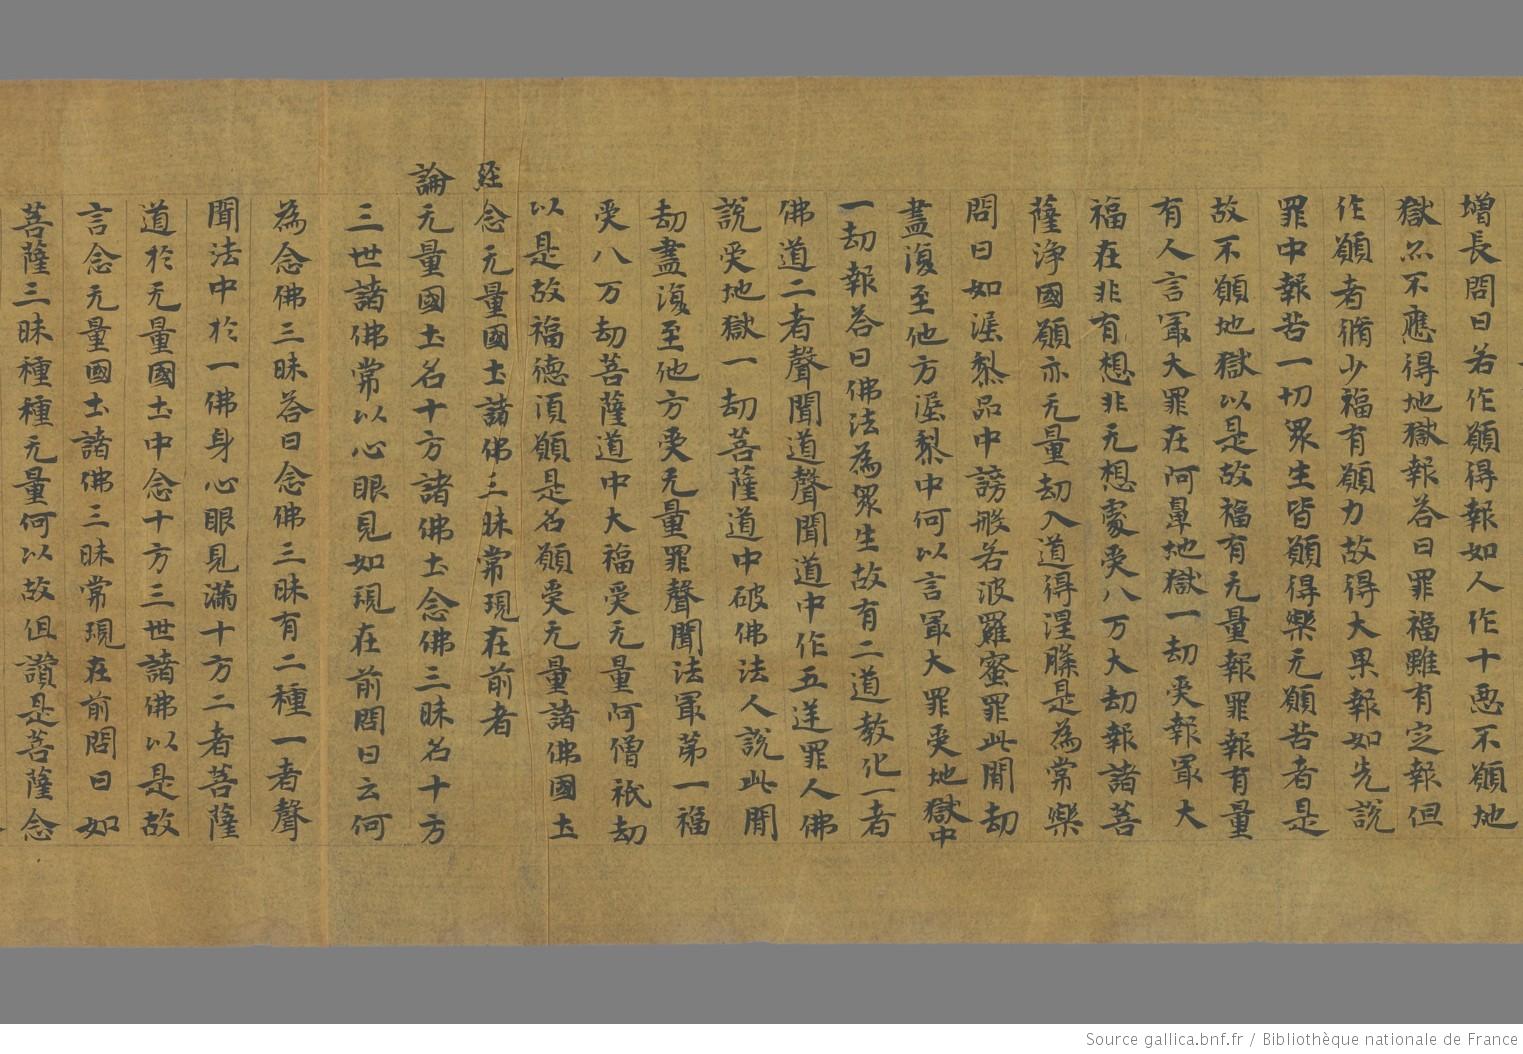 增長問曰若作願得報如人作十惡不願地
獄亦不應得地獄報荅曰罪福雖有㝎報但
作願者脩少福有願力故得大果報如先說
罪中報苦一切眾生皆願得樂无願苦者是
故不願地獄以是故福有无量報罪報有量
有人言冣大罪在阿鼻地獄一劫受報冣大
福在非有想非无想處受八万大劫報諸菩
薩淨國願亦无量劫入道得涅槃是為常樂
問曰如泥黎品中謗般若波羅蜜罪此間劫
盡復至他方泥黎中何以言冣大罪受地獄中
一劫報荅曰佛法為眾生故有二道教化一者
佛道二者聲聞道聲聞道中作五逆罪人佛
說受地獄一劫菩薩道中破佛法人說此間
劫盡復至他方受无量罪聲聞法冣苐一福
受八万劫菩薩道中大福受无量阿僧祇劫
以是故福德湏願是名願受无量諸佛國土
經念无量國土諸佛三昧常現在前者
論无量國土名十方諸佛土念佛三昧名十方
三世諸佛常以心眼見如現在前問曰云何
為念佛三昧荅曰念佛三昧有二種一者聲
聞法中於一佛身心眼見滿十方二者菩薩
道於无量國土中念十方三世諸佛以是故
言念无量國土諸佛三昧常現在前問曰如
菩薩三昧種種无量何以故但讚是菩薩念
Source gallica.bnf.fr / Bibliothèque nationale de France